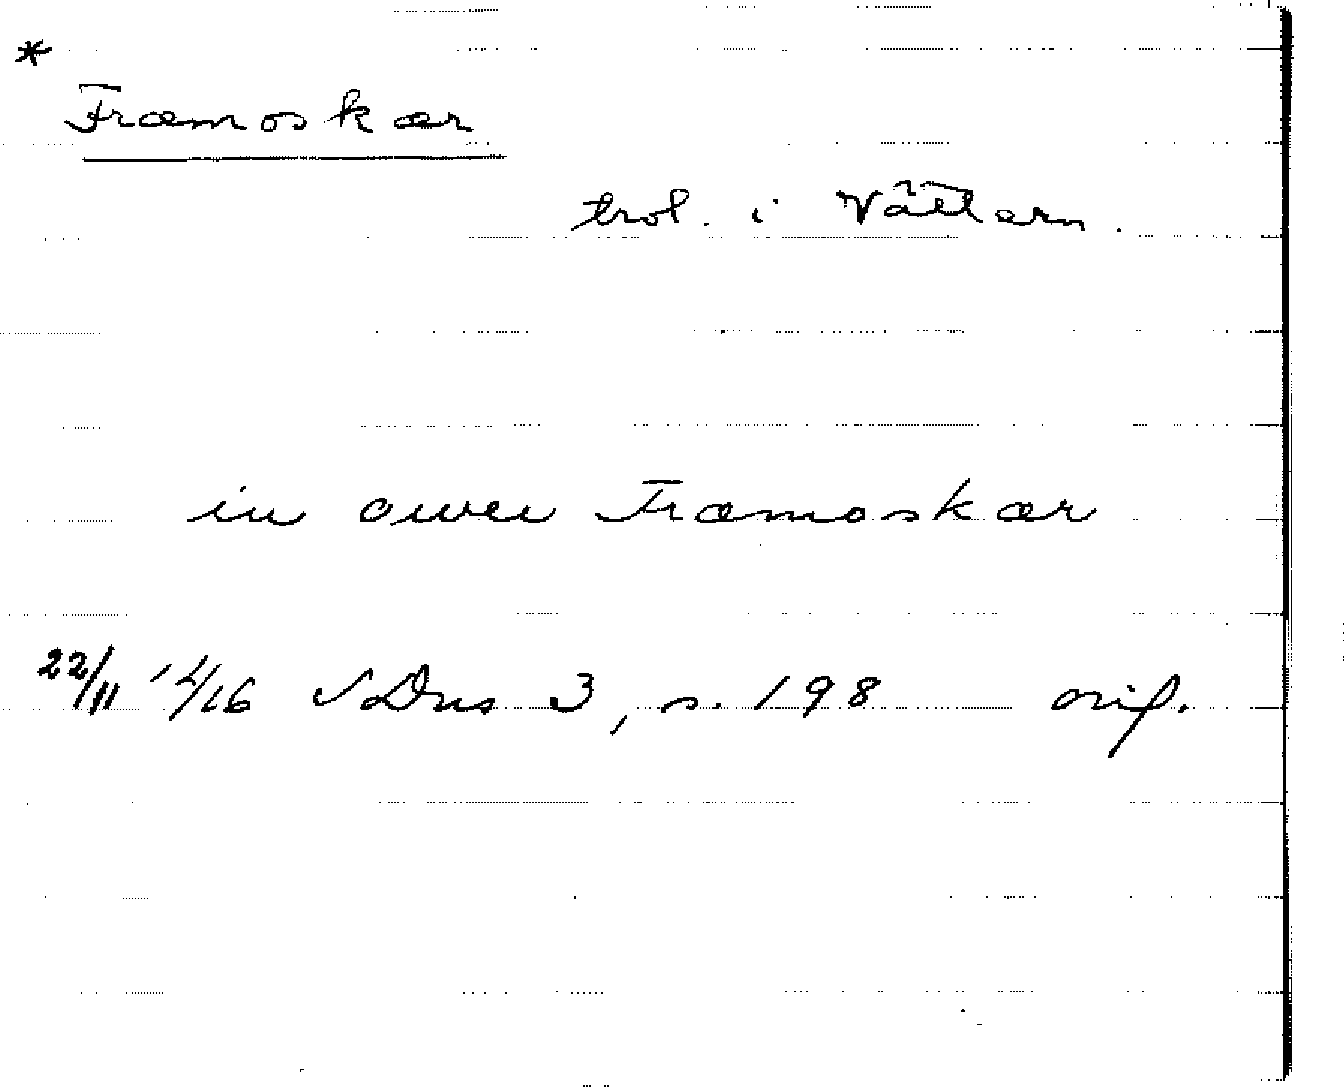 *
Fræmoskær
trol. i Vättern.
in owen Fræmoskær
22/11 14/16 SDns 3, s. 198 orig.